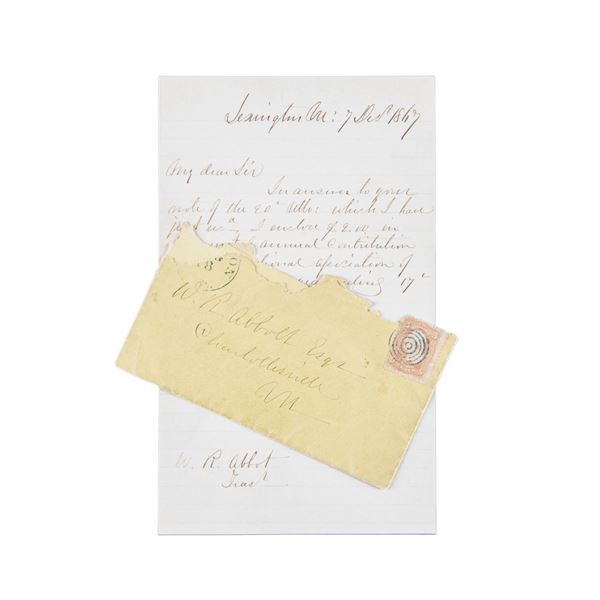 Lexington Va: 7 Decr 1867
My dear Sir
In answer to your
note of the 20th Ulto: which I have
just recd, I enclose $2.00, in
annual Contribution
ional Association of
ending 17th
8
W. R. Abbott Esqr
Charlottesville
Va
W. R. Abbot
Treasr